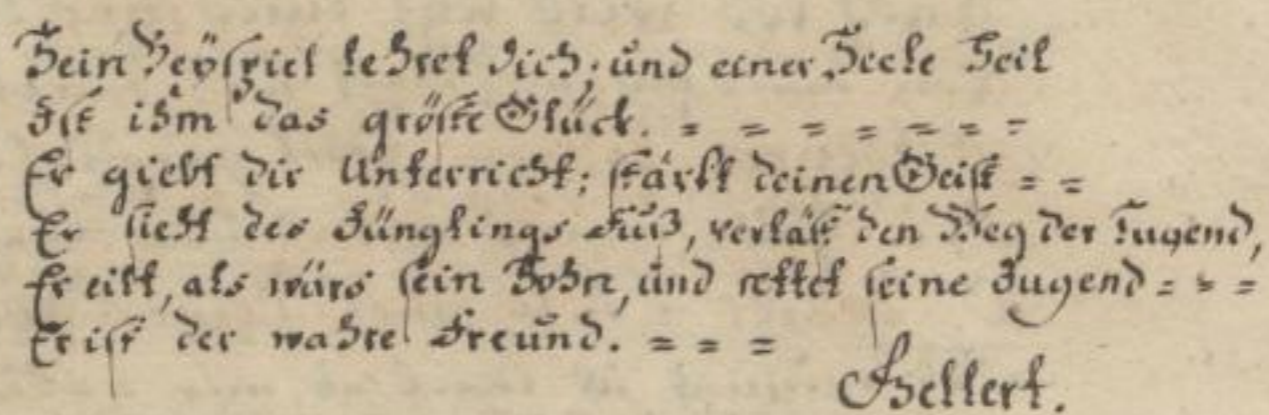 Sein Beÿspiel lehret dich; und einer Seele Heil
Ist ihm das größte Glück. = = = = = = =
Er giebt dir Unterricht; stärkt deinen Geist = =
Er sieht des Jünglings Fuß, verläßt den Weg der Tugend,
Er eilt, als wärs sein Sohn, und rettet seine Jugend = = =
Er ist der wahre Freund. = = =
Gellert.